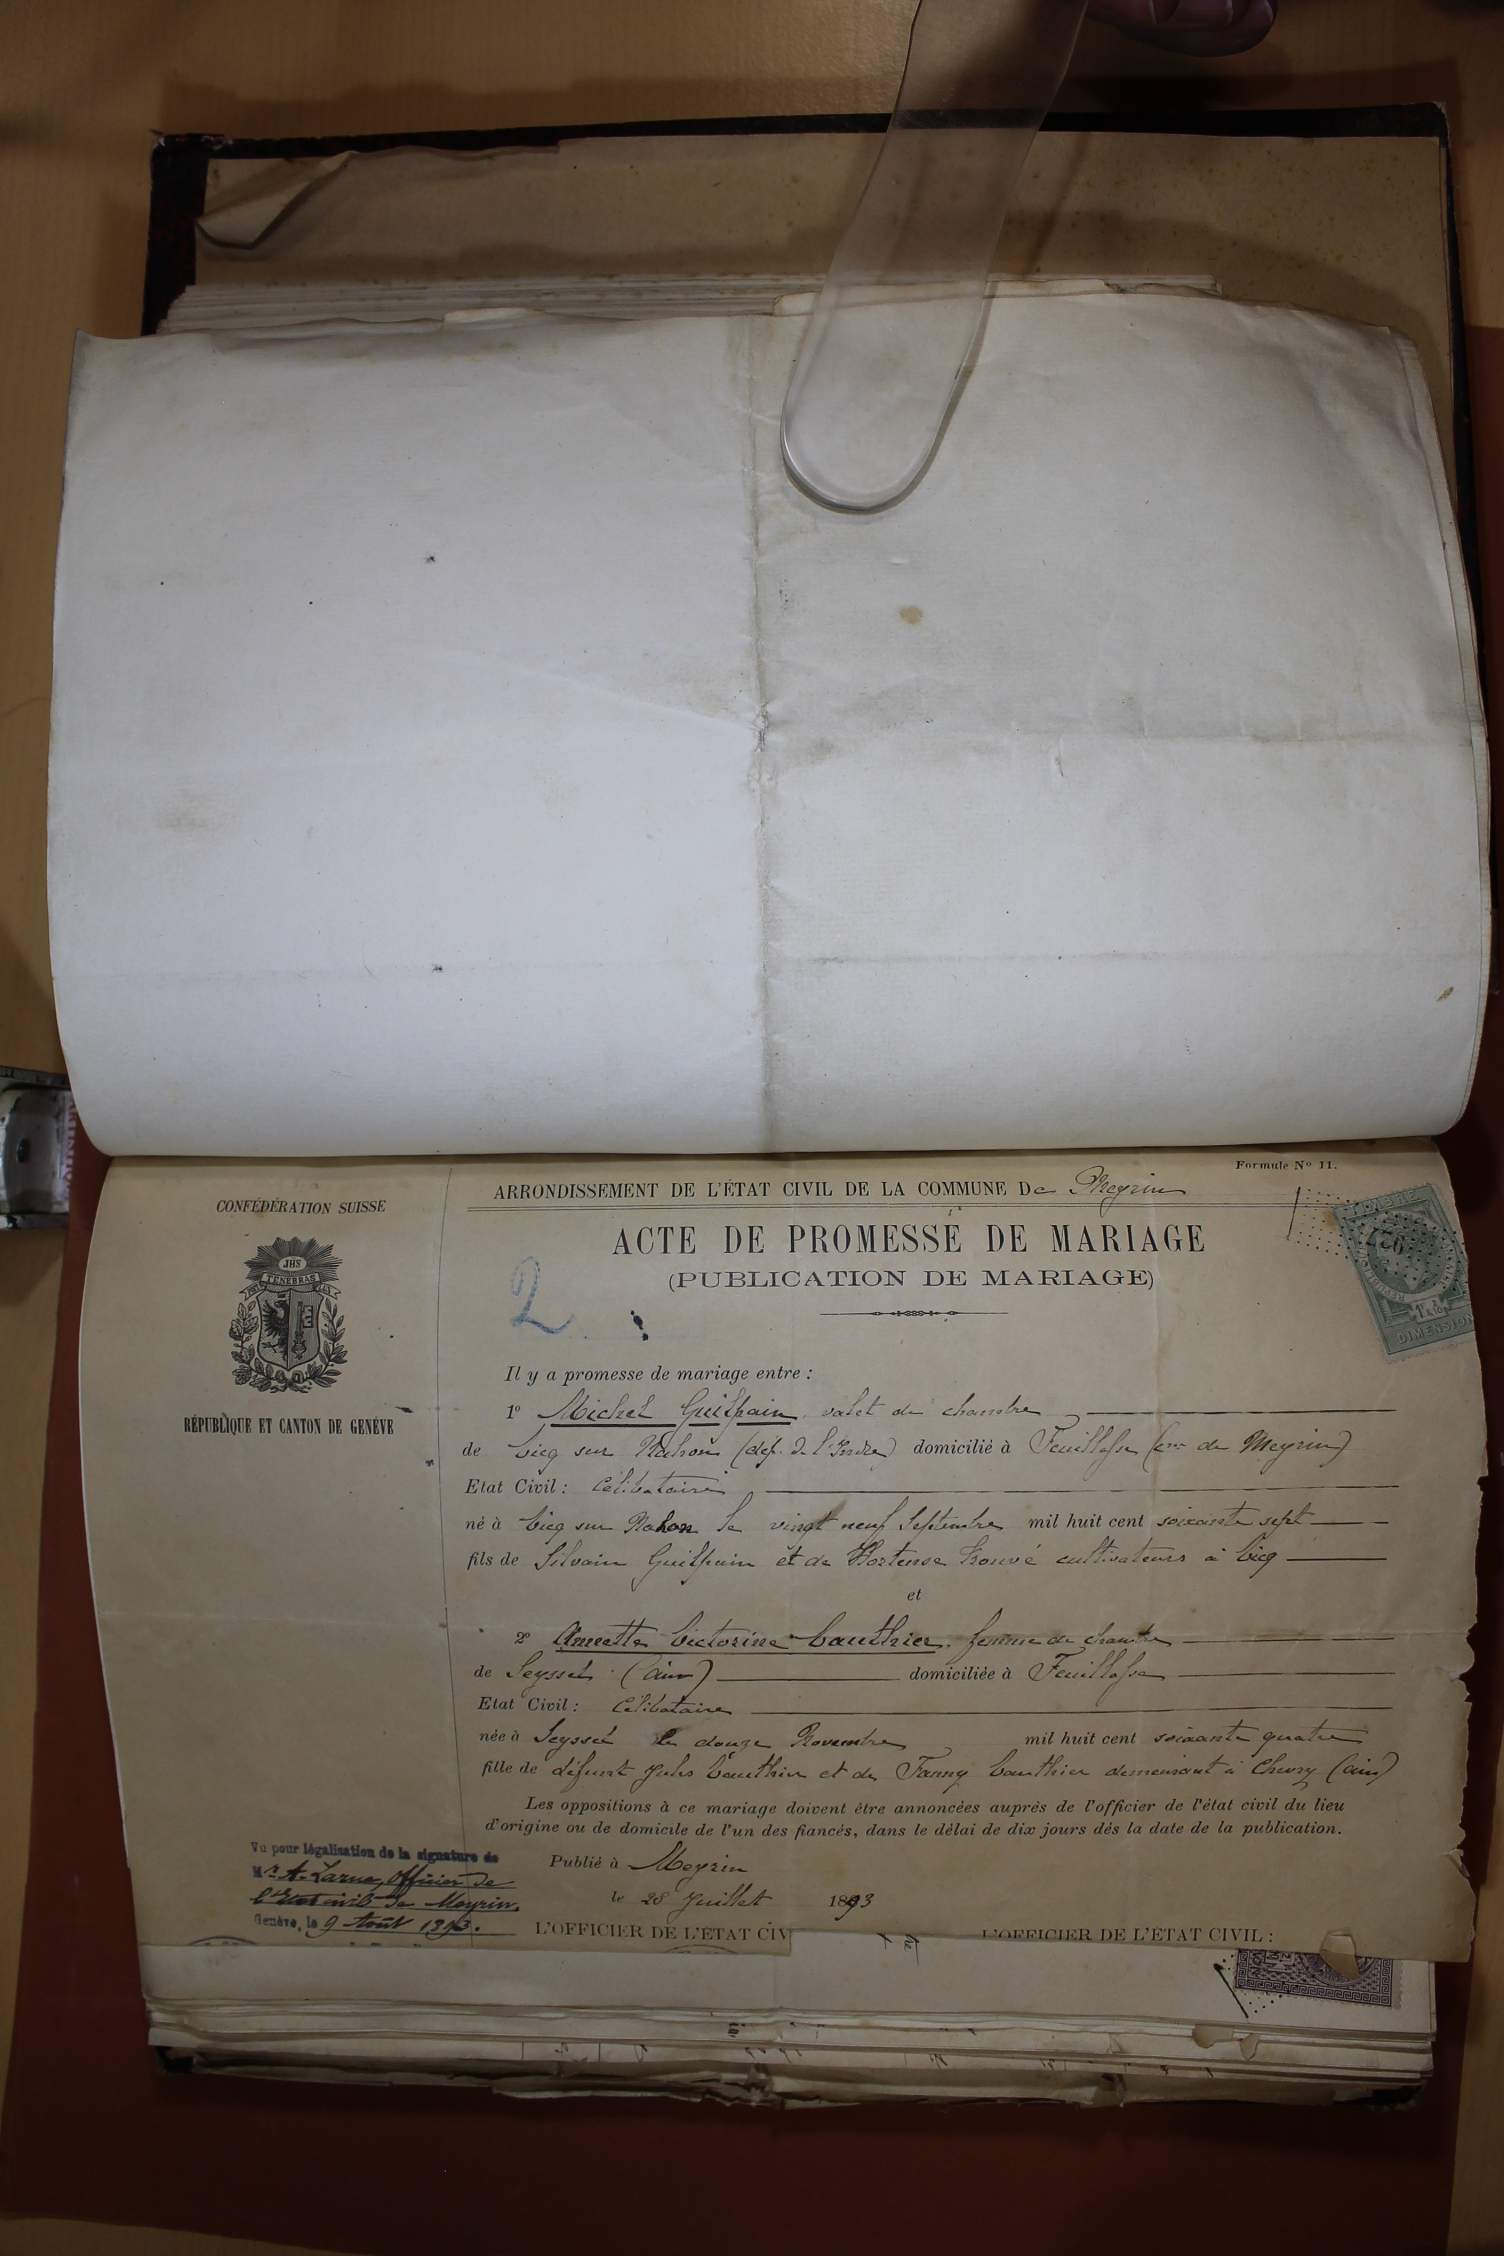 Formule No 11.
CONFÉDÉRATION SUISSE
JHS
TENEBRAS
RÉPUBLIQUE ET CANTON DE GENÈVE
ARRONDISSEMENT DE L'ÉTAT CIVIL DE LA COMMUNE De Meyrin
ACTE DE PROMESSE DE MARIAGE
(PUBLICATION DE MARIAGE)
2.
DIMENSION
Il y a promesse de mariage entre :
1o Michel Guilpain valet de chambre
de Vicq sur Nahon (dép. de l'Indre) domicilié à Feuillasse (cne de Meyrin)
Etat Civil : Célibataire
né à Vicq sur Nahon le vingt neuf Septembre mil huit cent soixante sept
fils de Silvain Guilpain et de Hortense Trouvé cultivateurs à Vicq
et
2o Annette Victorine Gauthier femme de chambre
de Seyssel (Ain) domiciliée à Feuillasse
Etat Civil : Célibataire
née à Seyssel le douze Novembre mil huit cent soixante quatre
fille de défunt Jules Gauthier et de Fanny Gauthier demeurant à Chevry (Ain)
Les oppositions à ce mariage doivent être annoncées auprès de l'officier de l'état civil du lieu
d'origine ou de domicile de l'un des fiancés, dans le délai de dix jours dès la date de la publication.
Publié à Meyrin
le 28 Juillet 1893
L'OFFICIER DE L'ÉTAT CIV
L'OFFICIER DE L'ÉTAT CIVIL :
Vu pour légalisation de la signature de
Mr. A. Larue, Officier de
l'Etat civil de Meyrin.
Genève, le 9 Août 1893.